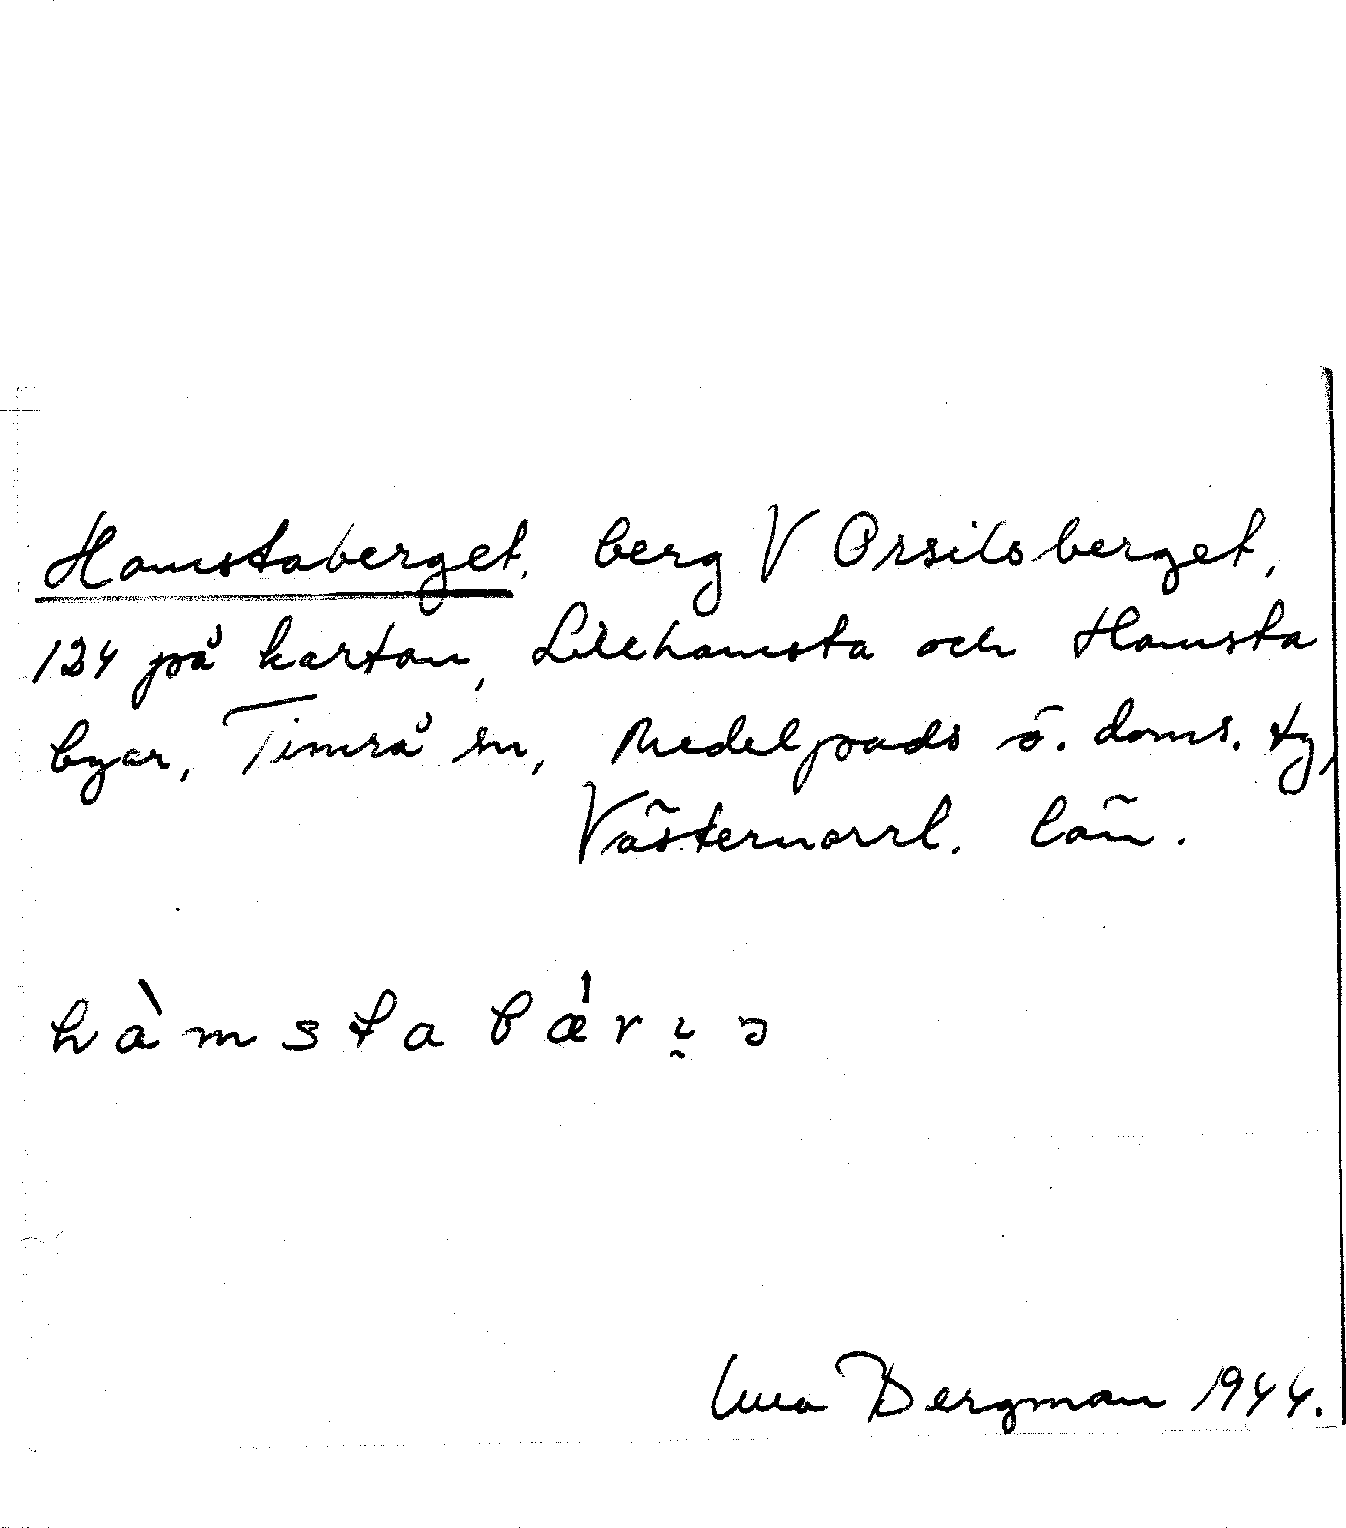 Hamstaberget, berg V Orsilsberget,
124 på kartan, Lillhamsta och Hamsta
byar, Timrå sn, Medelpads ö. doms. tg,
Västernorrl. län.
hàmstabǽri̯ə
Bergman 1944.